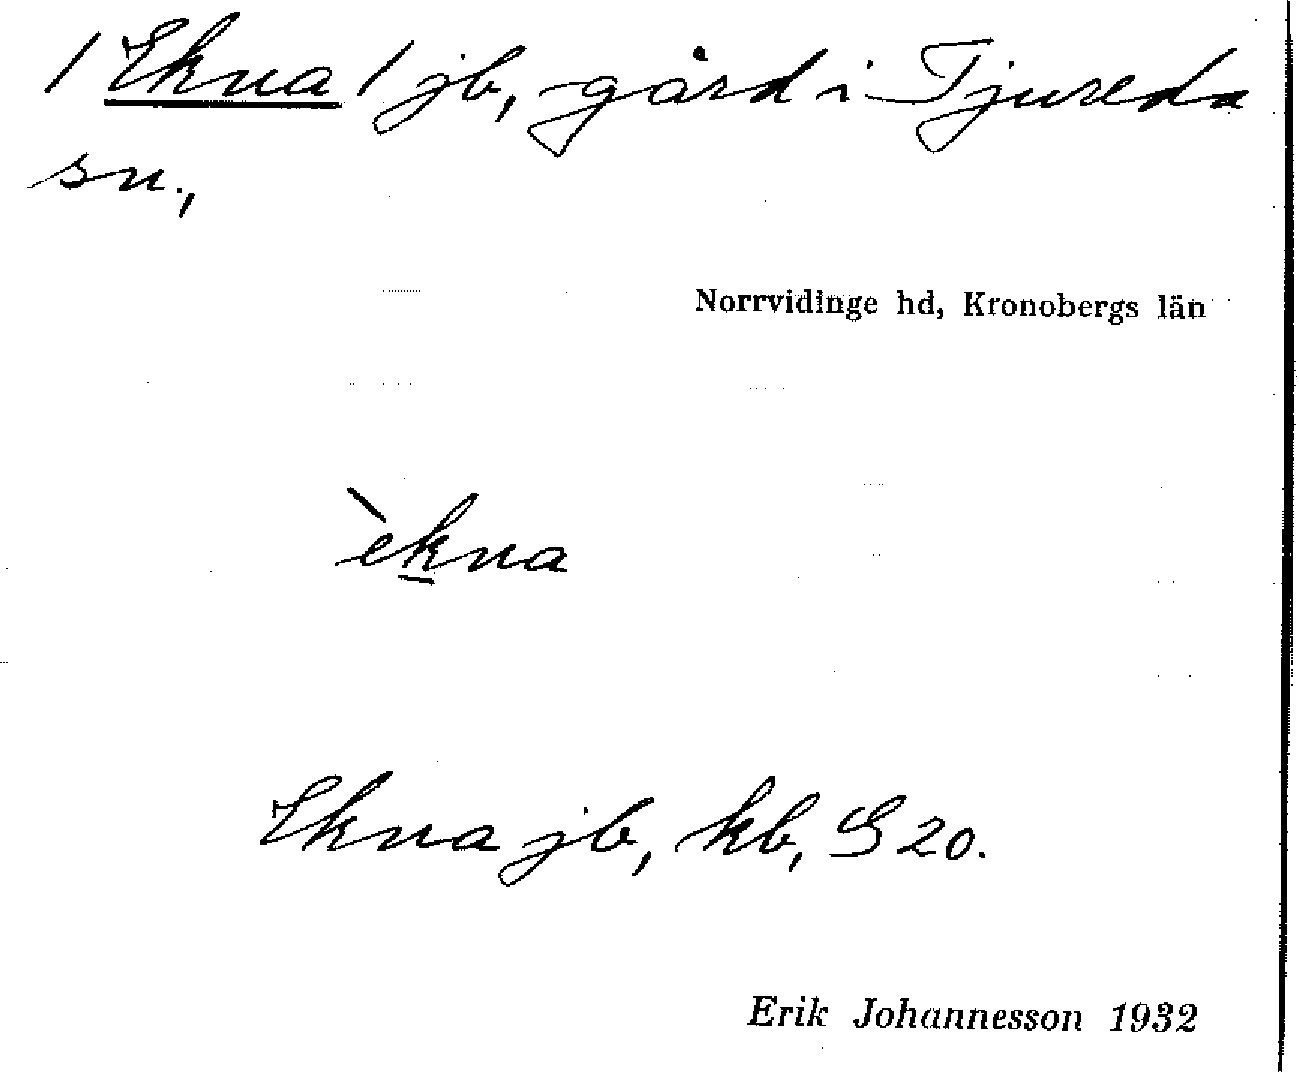 / Ekna / jb, gård i Tjureda
sn.,
Norrvidinge hd, Kronobergs län
èkna
Ekna jb, kb, S 20.
Erik Johannesson 1932